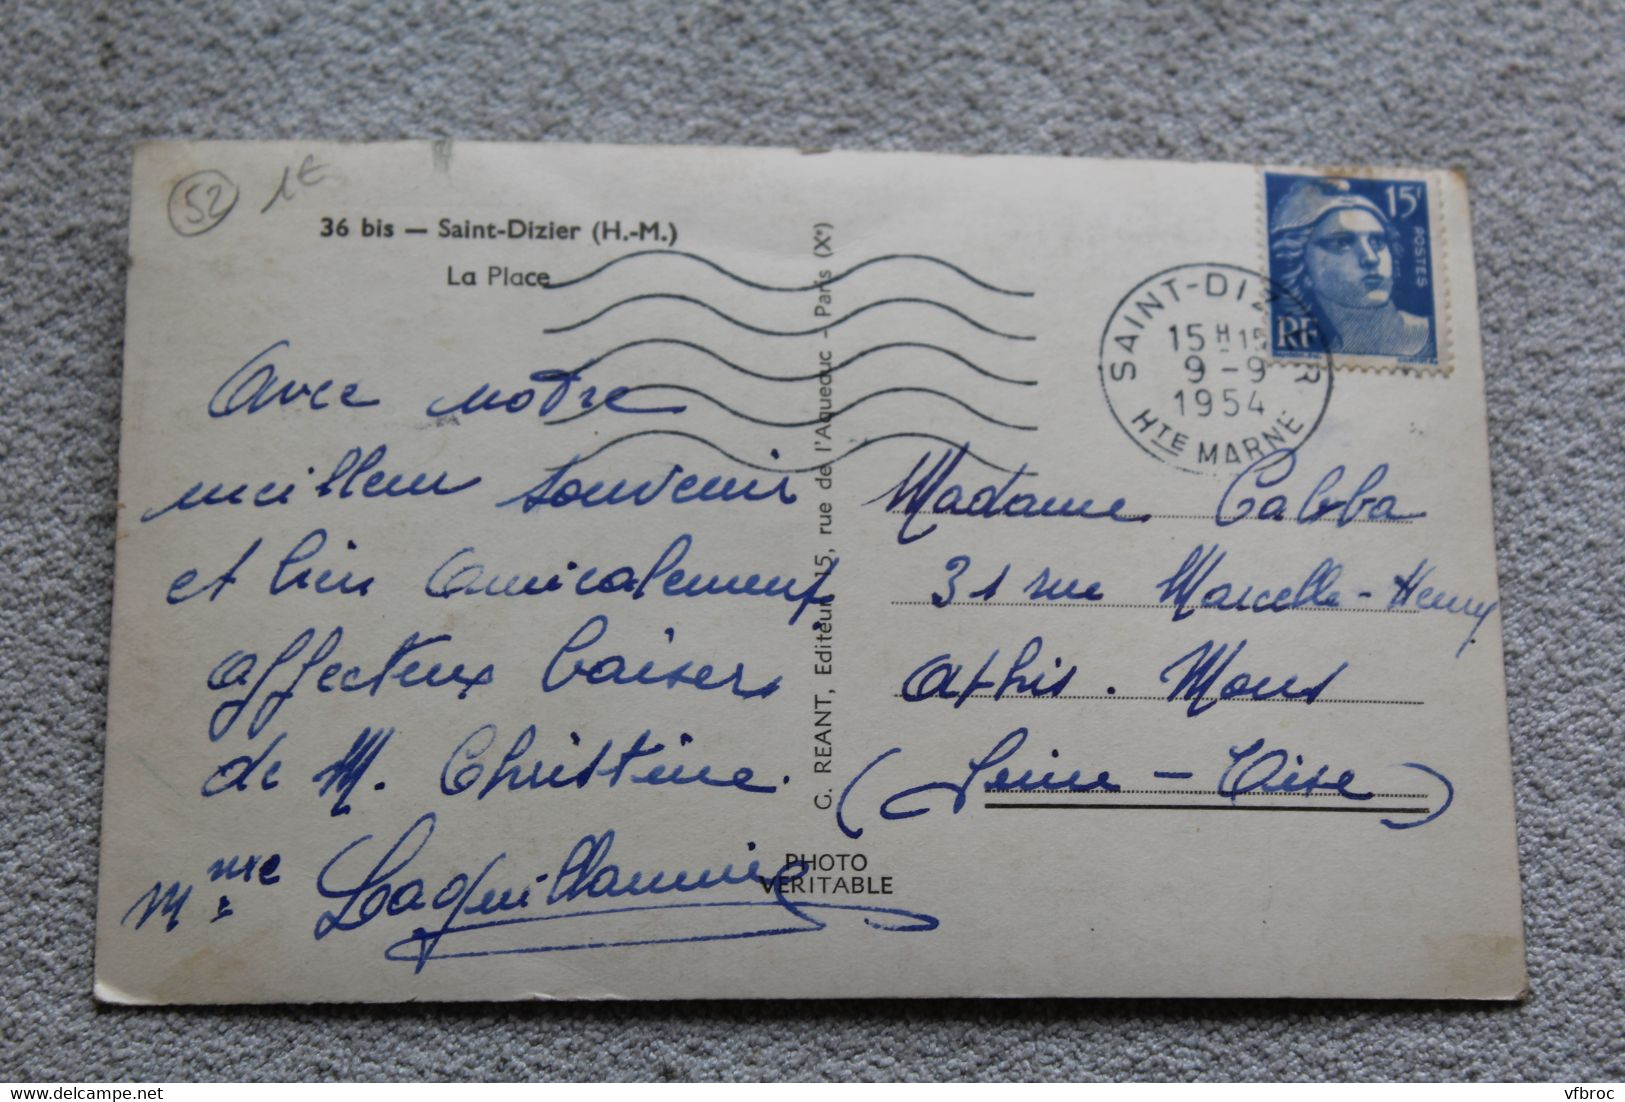 52 1€
36 bis — Saint-Dizier (H.-M.)
La Place
Avec notre
meilleur souvenir
et bien amicalement
affectueux baisers
de M. Christine.
Mme Laguillaumie
G. REANT, Editeur, 15, rue de l'Aqueduc - Paris (Xe)
PHOTO
VERITABLE
15F
POSTES
RF
SAINT-DIZIER
15H15
9-9
1954
HTE MARNE
Madame Cabba
31 rue Marcelle-Henry
Athis. Mons
(Seine-Oise)
delcampe.net
vfbroc